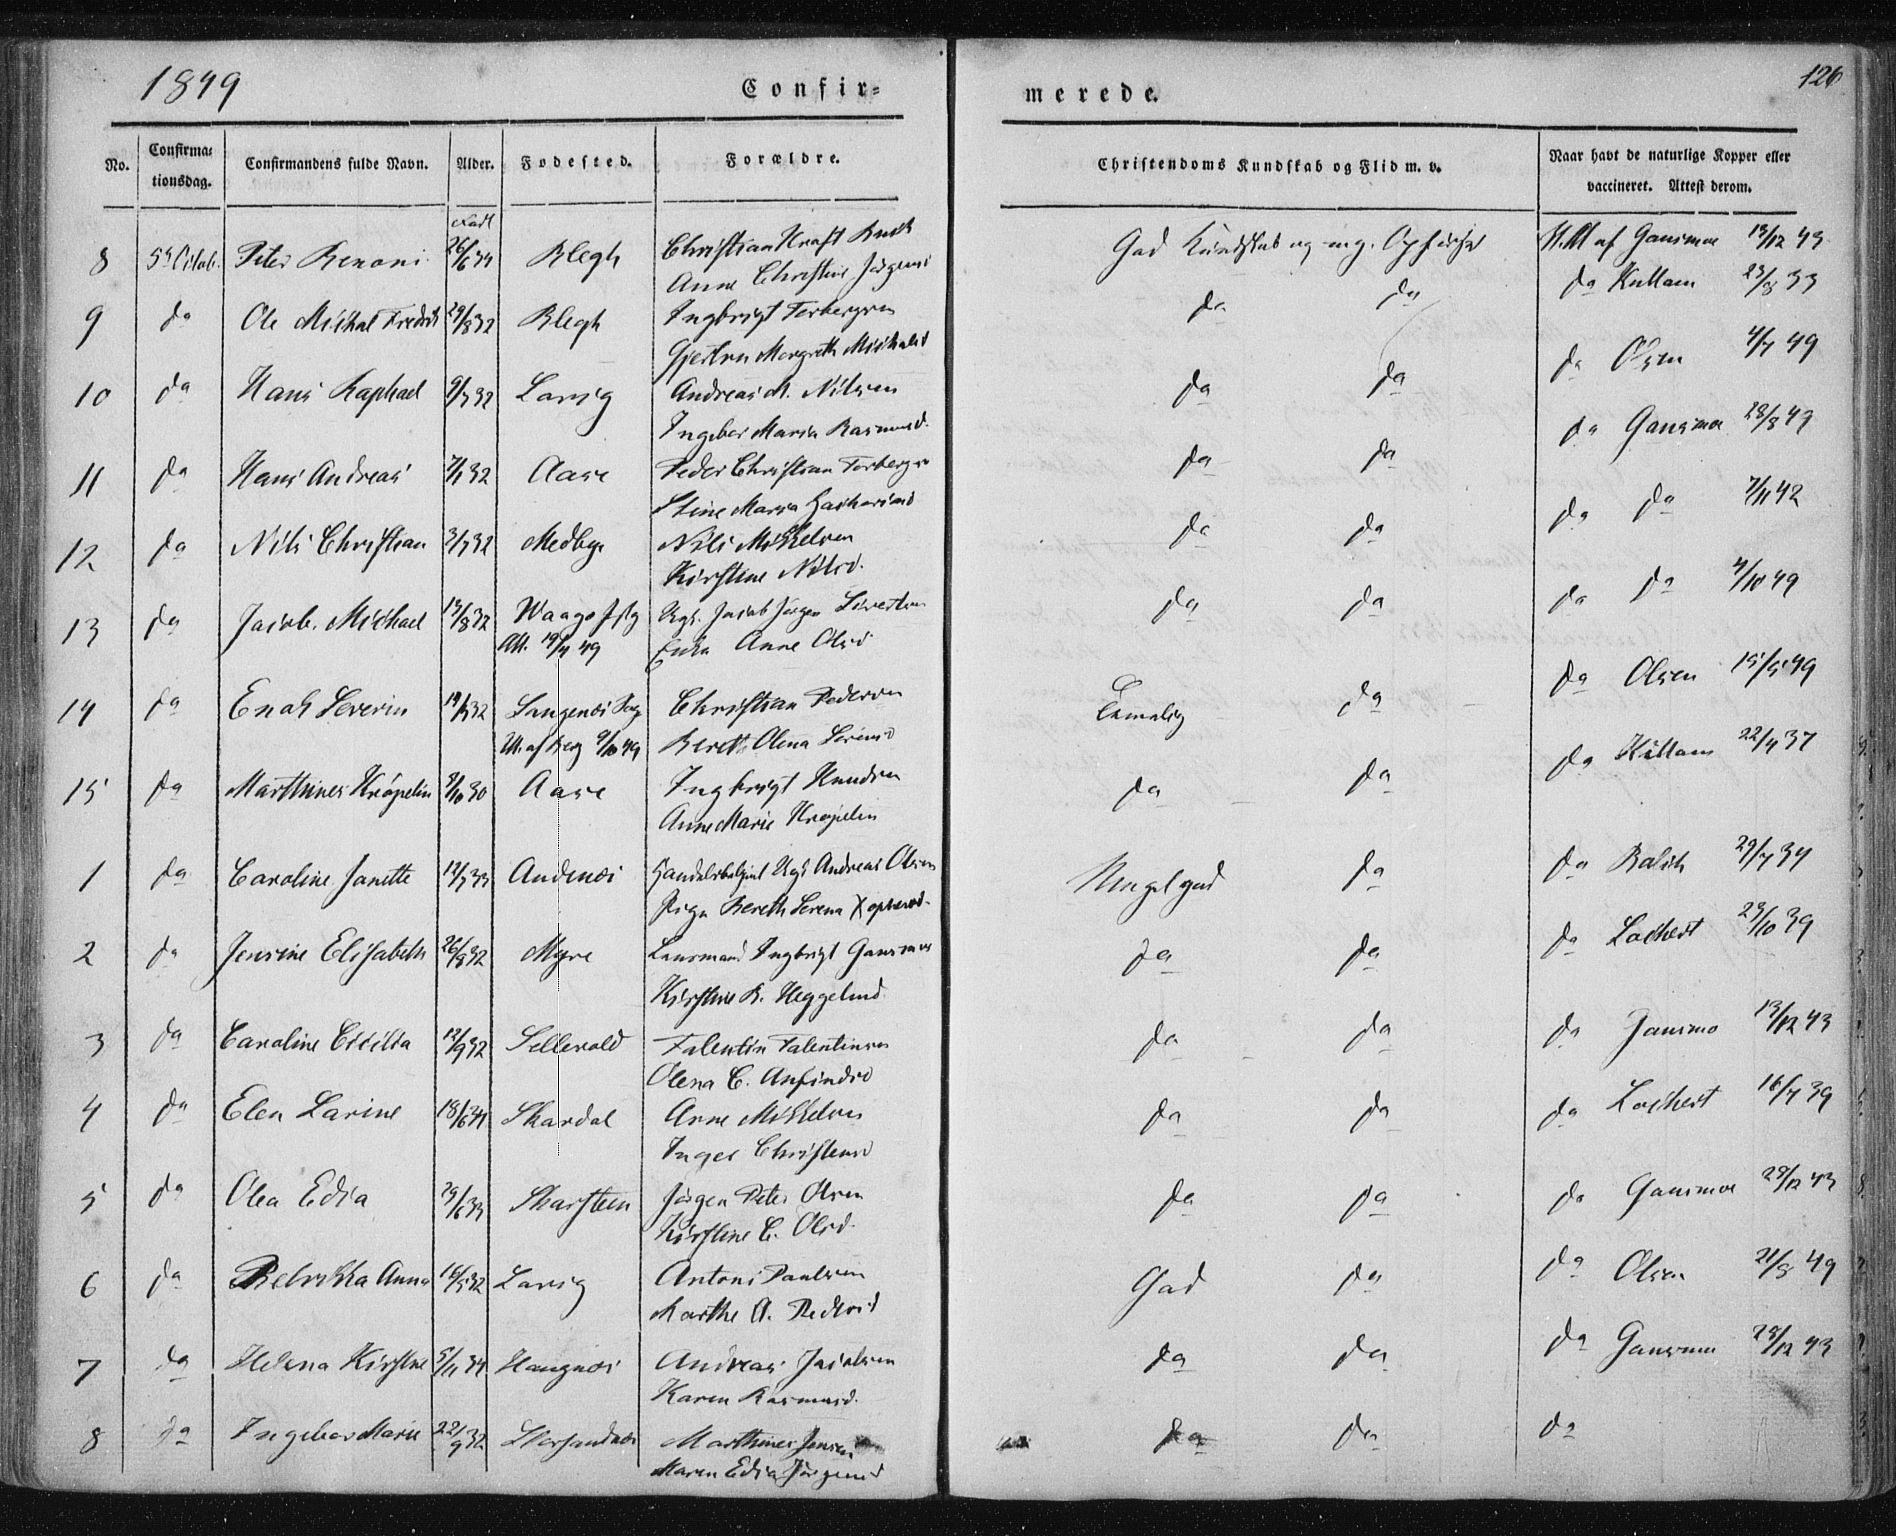 1849 Confir= merede. 126
No. Confirma= tionsdag. Confirmandens fulde Navn. Alder. Fodested. Forældre. Christendoms Kundskab og Flid m. v. Naar havt de naturlige Kopper eller vaccineret. Attest derom.
8 5te Octob. Peter Benoni 26/6 34 Blegh Christian Kraft Busk God Kundskab og mg. af Gansmoe 13/12 43
Anne Christine
9 do Ole Michal Fredrik 29/8 32 Blegh Ingbrigt Torbergsen do do do Kullam 23/8 33
Margreth
10 do Hans Raphael 9/7 32 Lavsig Andreas M. Nilsen do do do Olsen 4/7 49
Ingebor Maria Rasmusd.
11 do Hans Andreas 7/1 32 Aase Peder Christian do do do Gansmoe 28/8 43
Stine Maria
12 do Nils Christian 3/7 32 Medbye Nils Mikkelsen do do do do 7/11 42
Kirstine Nilsd.
13 do Jacob Michael 19/8 32 Jacob Jørgen Sivertsen do do do do 4/10 49
Att. 19/4 49 Anne Olsd
14 do Enok Severin 32 Langenæs Christian Pedersen Temelig do do Olsen 15/5 49
af Berg 9/10 49 Bereth Olena
15 do Marthines Krøpelin 9/10 30 Aase Ingbrigt Knudsen do do do Kullam 22/4 37
Anne Marie Krøpelin
1 do Caroline Janette 12/7 33 Andenæs Andreas Olsen Meget god do do Balch 29/7 34
Bereth Serena
2 do Jensine Elisabeth 26/8 32 Myre Lensmand Ingbrigt Gansmoe do do do Lochert 23/10 39
Kirstine B. Heggelund
3 do Caroline Cicilia 12/9 32 Sellevold Falentin Falentinsen do do do Gansmo 13/12 43
Olena C. Anfindsd
4 do Elen Larine 18/6 34 Skardal Arne Mikkelsen do do do Lochert 16/7 39
Inger Christensd
5 do Olea Edia 29/6 33 Skarsteen Jørgen Peter Olsen do do do Gansmoe 28/12 43
Kirstine C. Olsd.
6 do Rebekka Anna 16/5 32 Lavsig Antoni Paulsen God do do Olsen 21/8 49
Marthe A. Pedersd
7 do Helena Kirstine 5/11 34 Haugnæs Andreas Jacobsen do do do Gansmoe 28/12 43
Karen Rasmusd.
8 do Ingebor Marie 22/9 32 Marthines Jensen do do do
Maren Edia Jørgensd